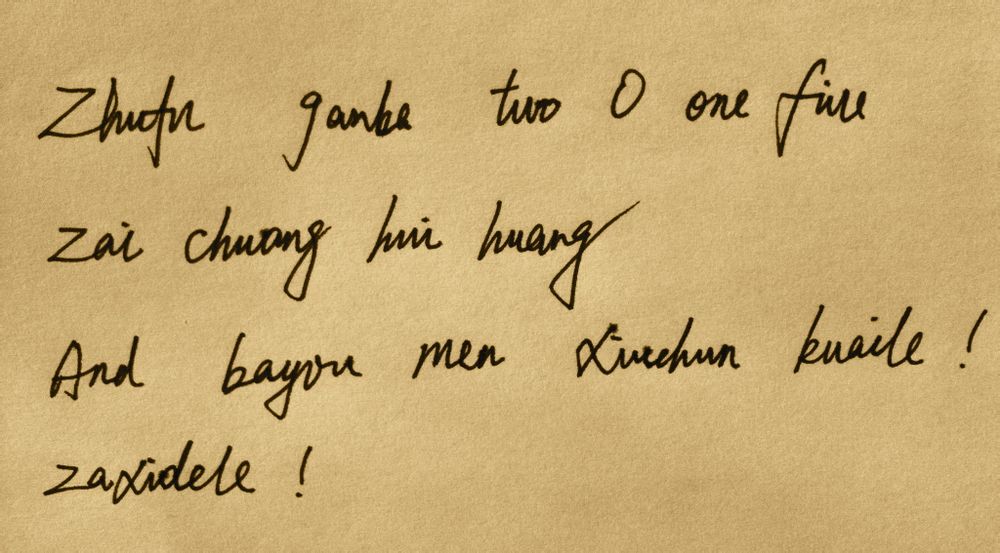 Zhufu ganba two 0 one five
zai chuang hui huang
And bayou men xinchun kuaile !
zaxidele !